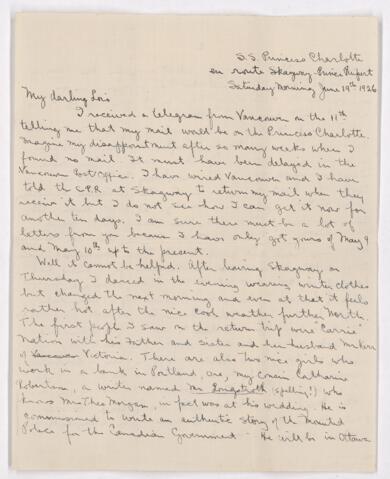 S.S. Princess Charlotte
en route Skagway-Prince Rupert
Saturday Morning, June 19th 1926
My darling Lois
I received a telegram from Vancouver on the 11th
telling me that my mail would be on the Princess Charlotte.
Imagine my disappointment after so many weeks when I
found no mail. It must have been delayed in the
Vancouver Post Office. I have wired Vancouver and I have
told the C.P.R. at Skagway to return my mail when they
receive it but I do not see how I can get it now for
another ten days. I am sure there must be a lot of
letters from you because I have only got yours of May 9
and May 10th up to the present.
Well it cannot be helped. After leaving Skagway on
Thursday I danced in the evening wearing winter clothes
but changed the next morning and even at that it feels
rather hot after the nice cool weather further North.
The first people I saw on the return trip were "Carrie"
Nation with his Father and Sister and her husband
of Victoria. There are also two nice girls who
work in a bank in Portland, Ore, my cousin Catharine
Robertson, a writer named Mr Longstreth (spelling?) who
knows Mr Theo Morgan, in fact was at his wedding. He is
commissioned to write an authentic story of the Mounted
Police for the Canadian Government - He will be in Ottawa